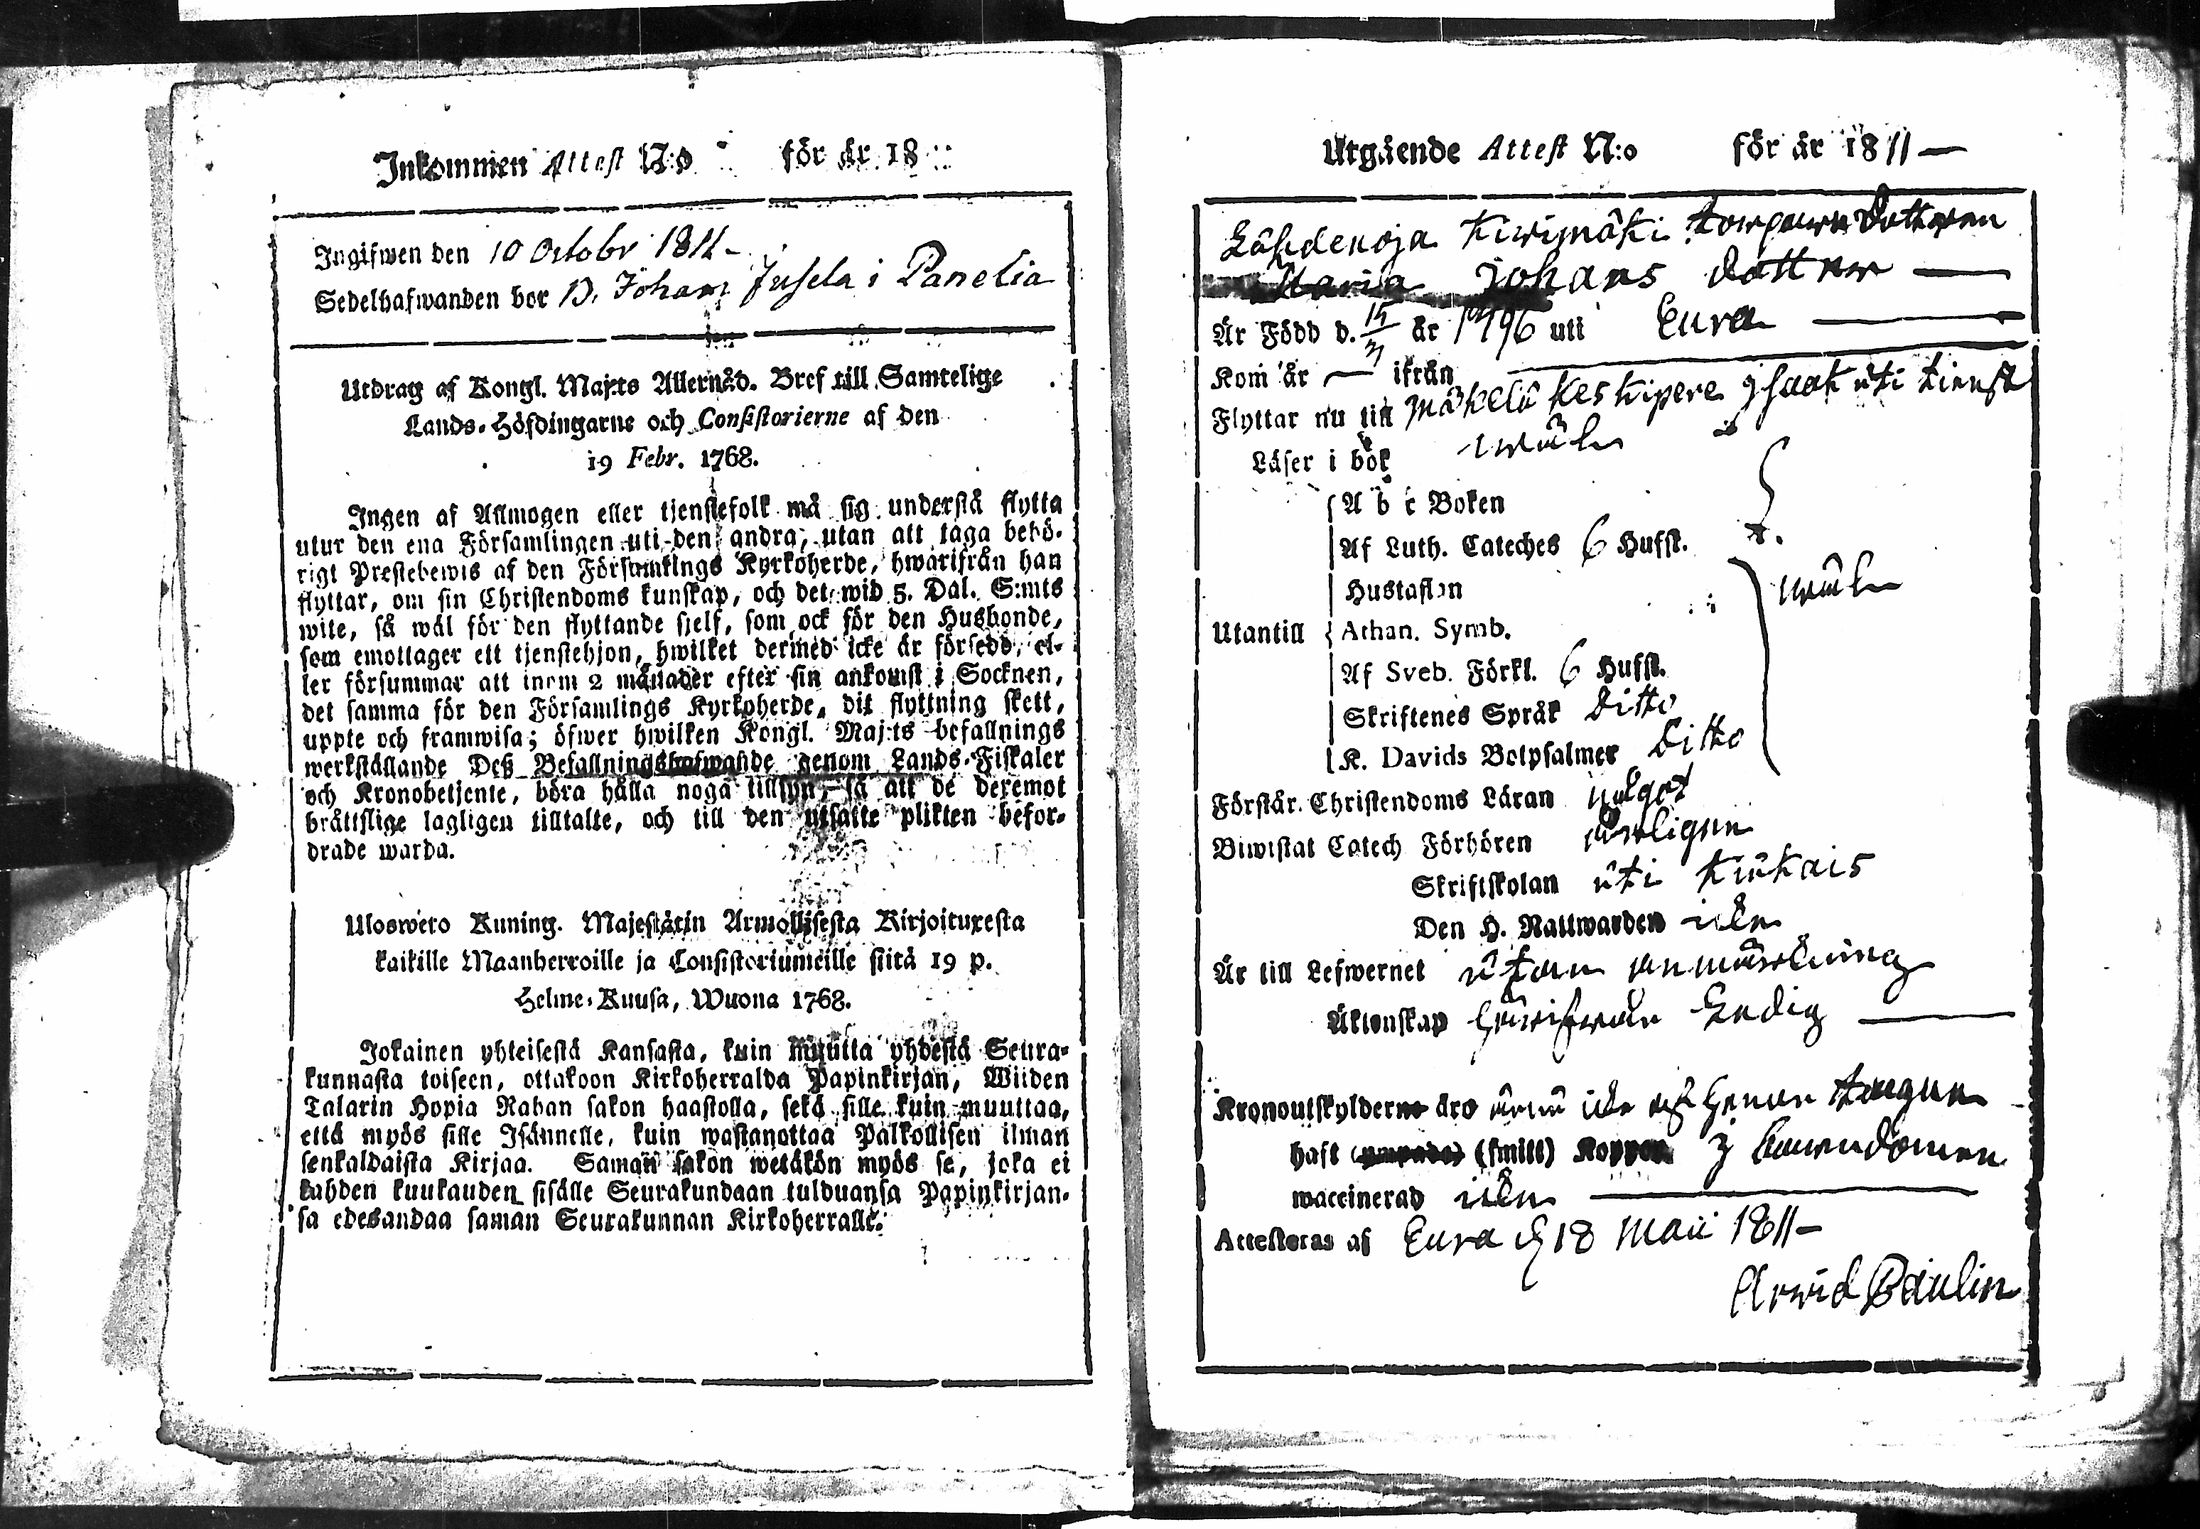 Inkommen Attest N:o för år 18
Ingifwen den 10 Octobr 1811 -
Sedelhafwanden bor D. Johan Jusela i Panelia
Utdrag af Kongl. Maj:ts Allernåd. Bref till Samtelige
Lands-Höfdingarne och Consistorierne af den
19 Febr. 1768.
Ingen af Allmogen eller tjenstefolk må sig understå flytta
utur den ena Församlingen uti den andra, utan att taga behö-
rigt Prestebewis af den Församlings Kyrkoherde, hwarifrån han
flyttar, om sin Christendoms kunskap, och det wid 5. Dal. S:mts
wite, så wäl för den flyttande sjelf, som ock för den Husbonde,
som emottager ett tjenstehjon, hwilket dermed icke är försedd, el-
ler försummar att inom 2 månader efter sin ankomst i Socknen,
det samma för den Församlings Kyrkoherde, dit flyttning skett,
uppte och framwisa; öfwer hwilken Kongl. Maj:ts befallnings
werkställande Deß Befallningshafwande genom Lands-Fiskaler
och Kronobetjente, böra hålla noga tillsyn, så att de deremot
bråttslige lagligen tilltalte, och till den utsatte plikten befor-
drade warda.
Ulosweto Kuning. Majestätin Armollisesta Kirjoituxesta
kaikille Maanherroille ja Consistoriumeille siitä 19 p.
Helme-Kuusa, Wuona 1768.
Jokainen yhteisestä Kansasta, kuin muutta yhdestä Seura-
kunnasta toiseen, ottakoon Kirkoherralda Papinkirjan, Wiiden
Talarin Hopia Rahan sakon haastolla, sekä sille kuin muuttaa,
että myös sille Isännelle, kuin wastanottaa Palkollisen ilman
senkaldaista Kirjaa. Saman sakon wetäkön myös se, joka ei
kahden kuukauden sisälle Seurakundaan tulduansa Papinkirjan-
sa edesandaa saman Seurakunnan Kirkoherralle.
Utgående Attest N:o för år 1811 —
Lähdenoja Kiwimäki torpare Dotteren
Maria Johans dotter —
Är Född d. 15/3 år 1796 uti Eura —
Kom år — ifrån —
Flyttar nu till Mäkelä Keskipere uti tienst
Läser i bok wäl
A b c Boken
Af Luth. Cateches 6 Hufst.
Hustaflan
Utantill Athan. Symb. wäl
Af Sveb. Förkl. 6 Hufst.
Skriftenes Språk Ditto
K. Davids Botpsalmer Ditto
Förstår Christendoms Läran något
Biwistat Catech Förhören årligen
Skriftskolan uti Kiukais
Den H. Nattwarden
Är till Lefwernet utan anmärkning
Äktenskap Ledig —
Kronoutskylderne äro af
haft (smitt) Koppor i barndomen
waccinerad —
Attesteras af Eura d 18 Maii 1811 -
Arwid Paulin